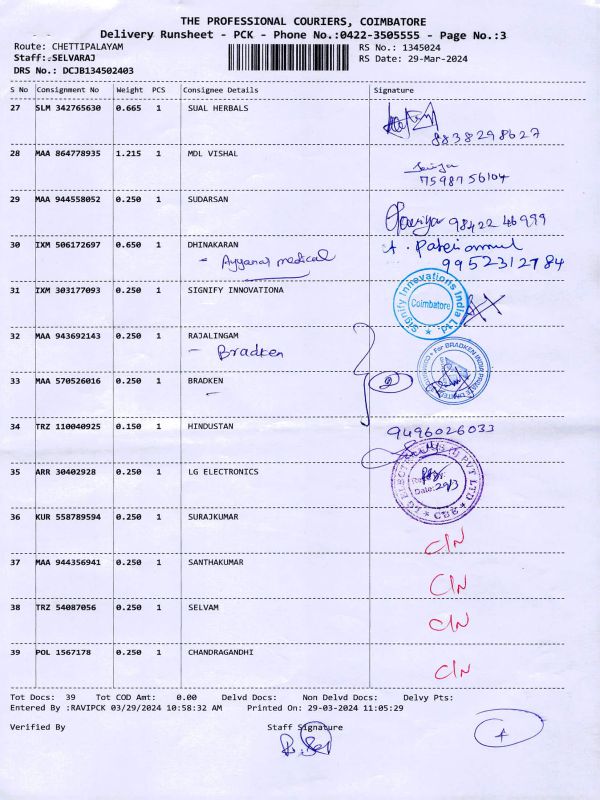 THE PROFESSIONAL COURIERS, COIMBATORE
Delivery Runsheet - PCK - Phone No.:0422-3505555 - Page No.:3
Route: CHETTIPALAYAM RS No.: 1345024
Staff: SELVARAJ RS Date: 29-Mar-2024
DRS No.: DCJB134502403
S No Consignment No Weight PCS Consignee Details Signature
27 SLM 342765630 0.665 1 SUAL HERBALS
8838298627
28 MAA 864778935 1.215 1 MDL VISHAL
7598756104
29 MAA 944558052 0.250 1 SUDARSAN
98422 46999
30 IXM 506172697 0.650 1 DHINAKARAN
- Ayyanar medical
9952312784
31 IXM 303177093 0.250 1 SIGNIFY INNOVATIONA
Signify Innovations India Ltd. Coimbatore
32 MAA 943692143 0.250 1 RAJALINGAM
- Bradken
For BRADKEN INDIA PRIVATE LIMITED
33 MAA 570526016 0.250 1 BRADKEN
2
34 TRZ 110040925 0.150 1 HINDUSTAN 9496026033
35 ARR 30402928 0.250 1 LG ELECTRONICS
Date: 29/3
PVT LTD CBE LG
36 KUR 558789594 0.250 1 SURAJKUMAR C/N
37 MAA 944356941 0.250 1 SANTHAKUMAR C/N
38 TRZ 54087056 0.250 1 SELVAM C/N
39 POL 1567178 0.250 1 CHANDRAGANDHI C/N
Tot Docs: 39 Tot COD Amt: 0.00 Delvd Docs: Non Delvd Docs: Delvy Pts:
Entered By :RAVIPCK 03/29/2024 10:58:32 AM Printed On: 29-03-2024 11:05:29
Verified By Staff Signature